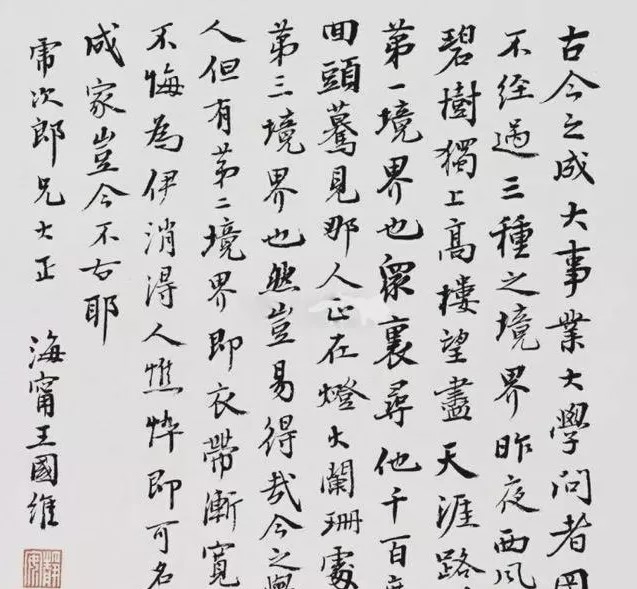 古今之成大事業大學問者罔
不經過三種之境界昨夜西風
碧樹獨上高樓望盡天涯路
第一境界也眾裏尋他千百度
回頭驀見那人正在燈火闌珊處
第三境界也然豈易得哉今之學
人但有第二境界即衣帶漸寬
不悔為伊消得人憔悴即可名
成家豈今不古耶
次郎兄大正
海甯王國維
靜安